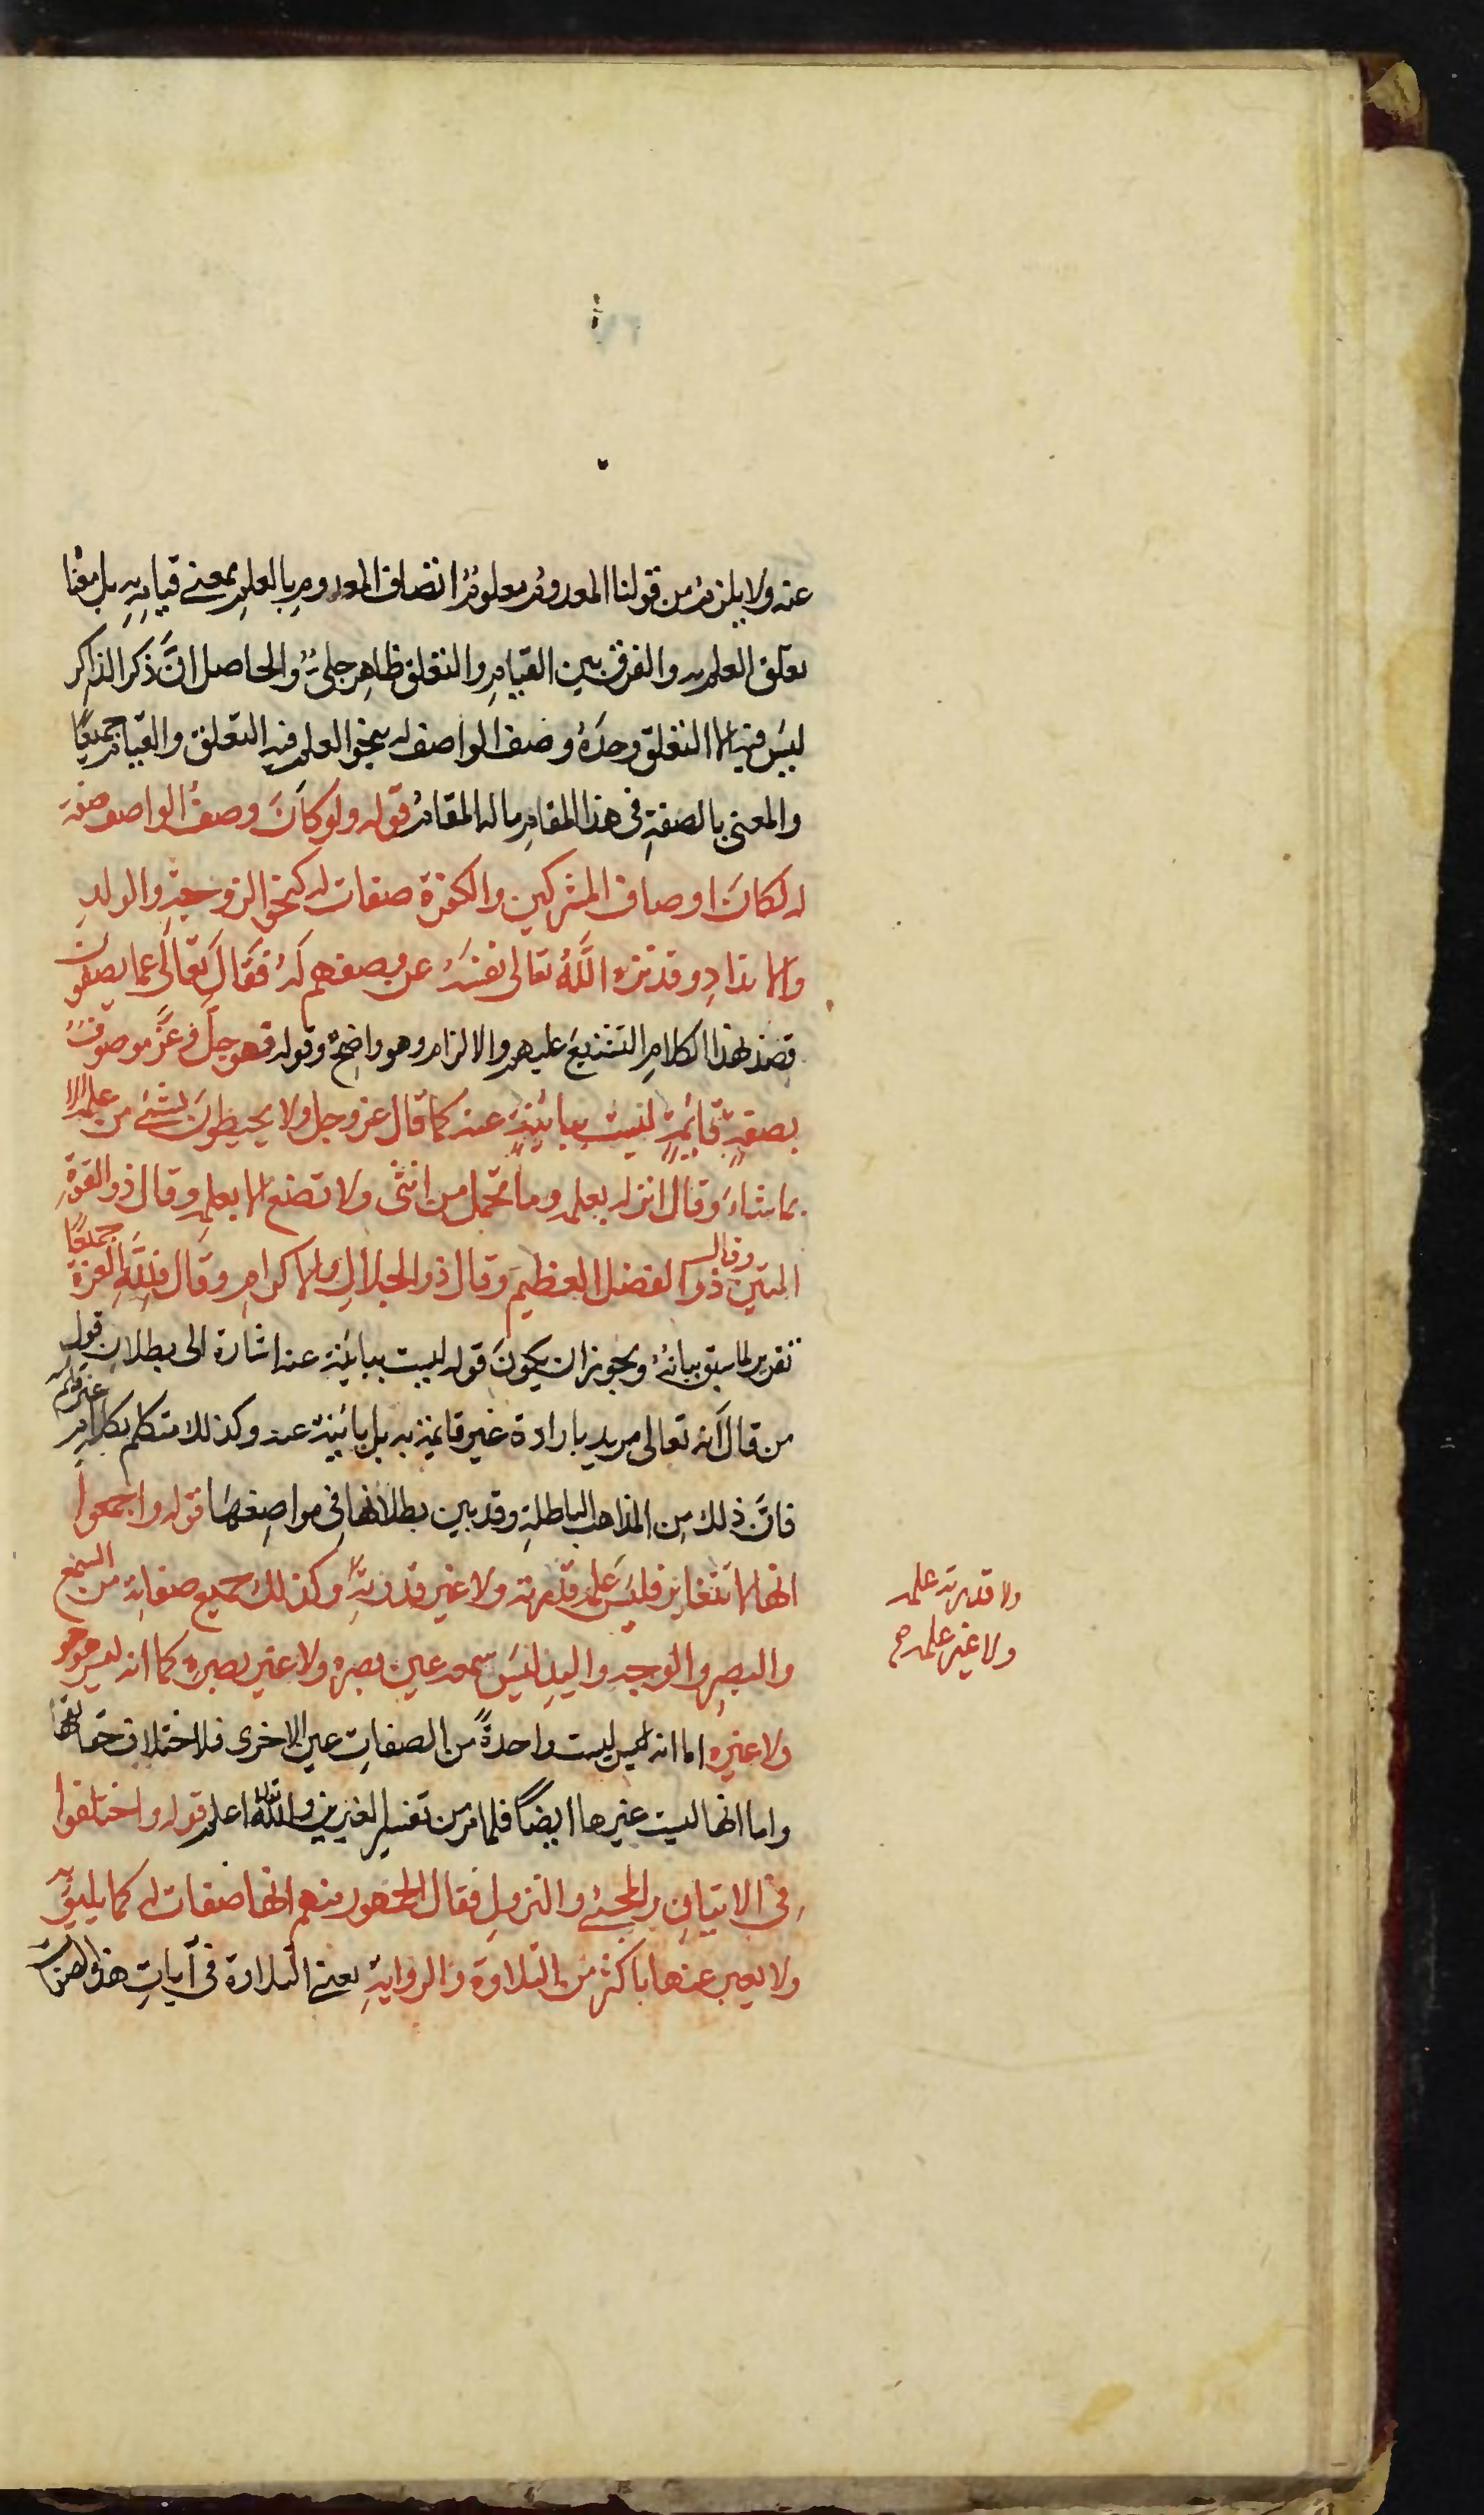 عنه ولا يلزم من قولنا المعدوم معلوم اتصاف المعدوم بالعلم بمعنى قيامه به بل معناه
تعلق العلم به والفرق بين القيام والتعلق ظاهر جلي والحاصل انَّ ذكر الذاكر
ليس فيه الا التعلق وحده وصف الواصف له بنحو العلم فيه التعلق والقيام جميعًا
والمعنى بالصفة في هذا المقام ماله المقام قوله ولو كانَ وصفُ الواصف صفة
له لكان اوصاف المشركين والكفرة صفات له كنحو الزوجة والولد
والانداد وقد نزه اللّٰه تعالى نفسه عن وصفهم له فقال تعالى عما يصفون
قصد بهذا الكلام التشنيع عليهم والالزام وهو واضح وقوله فهو جلّ وعزّ موصوف
بصفة قائمة ليست ببائنة عنه كما قال عز وجل ولا يحيطون بشئ من علمه الا
بما شاء وقال انزله بعلمه وما تحمل من انثى ولا تضع الا بعلمه وقال ذو القوة
المتين وقال ذو الفضل العظيم وقال ذو الجلال والاكرام وقال فللّٰه العزة جميعًا
تقرير لما سبق بيانه ويجوز ان يكونَ قوله ليست ببائنة عنه اشارة الى بطلان قول
من قال انه تعالى مريد بارادة غير قائمة به بل بائنة عنه وكذلك متكلم بكلام غير قائم به
فانَّ ذلك من المذاهب الباطلة وقد بين بطلانها في مواضعها قوله واجمعوا
انها لا تتغاير فليس علمه قدرته ولا غير قدرته وكذلك جميع صفاته من السمع
ولا قدرته علمه
ولا غير علمه صح
والبصر والوجه واليد ليس سمعه عين بصره ولا غير بصره كما انه ليس هو هو
ولا غيره اما انه ليس ليست واحدةً من الصفات عين الاخرى فلاختلاف حقائقها
واما انها ليست غيرها ايضًا فلما مر من تفسير الغيرين واللّٰه تعالى اعلم قوله واختلفوا
في الاتيان والمجئ والنزول فقال الجمهور منهم انها صفات له كما يليق به
ولا يعبر عنها باكثر من التلاوة والرواية يعني التلاوة في آيات هذه الصفات